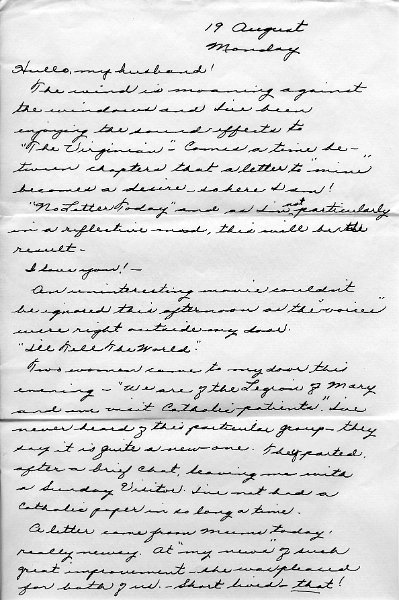 19 August
Monday
Hullo, my husband!
The wind is moaning against
the windows and I've been
enjoying the sound effects to
"The Virginian" - Comes a time be-
tween chapters that a letter to "mine"
becomes a desire - so here I am!
"No Letter Today" and as I'm not particularly
in a reflective mood, this will be the
result -
I love you! -
An uninteresting movie couldn't
be ignored this afternoon as the "voices"
were right outside my door.
"I'll Tell The World".
Two women came to my door this
evening - "We are of the Legion of Mary
and we visit Catholic patients." I've
never heard of this particular group - they
say it is quite a new one. They parted,
after a brief chat, leaving me with
a Sunday Visitor. I've not had a
Catholic paper in so long a time.
A letter came from Mums today;
really newsy. At "my news" of such
great improvement - she was pleased
for both of us. - Short lived - that!